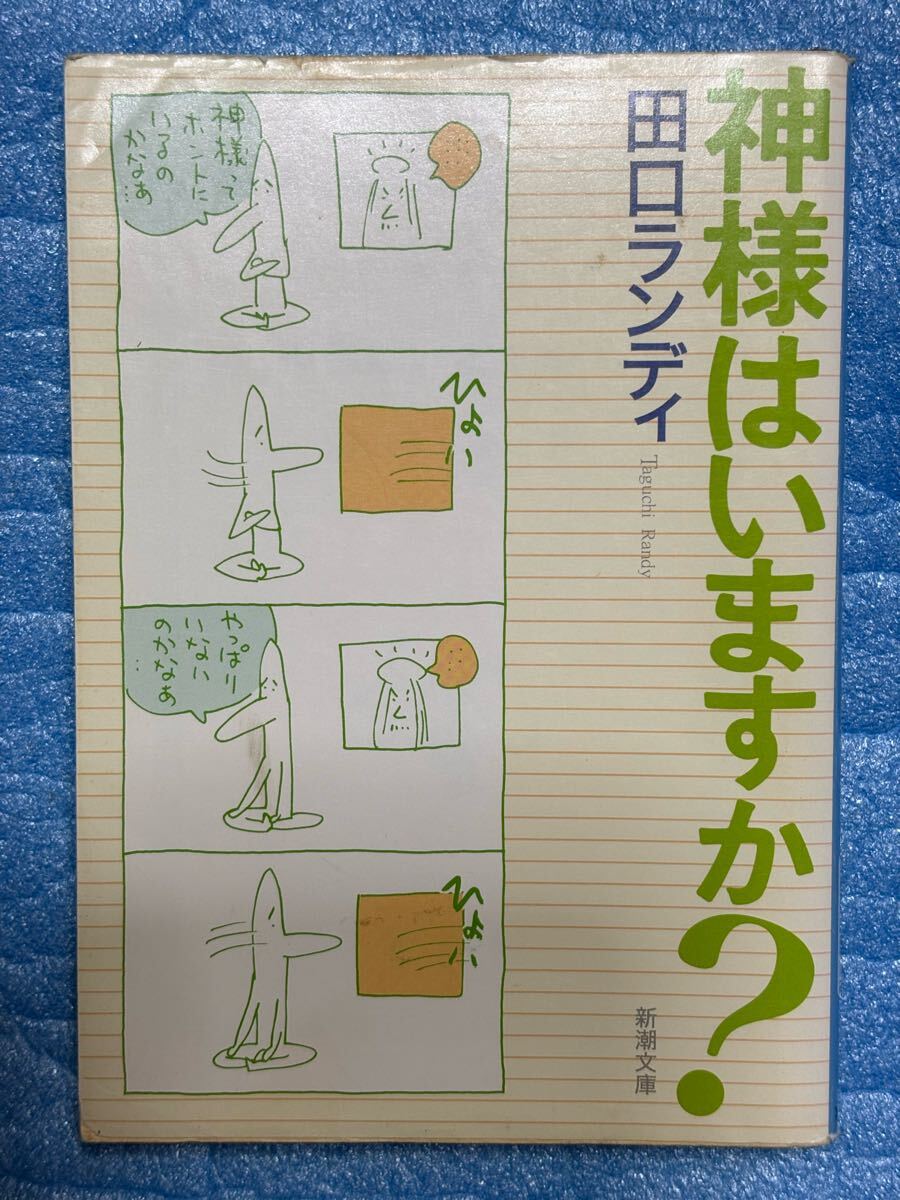 神様はいますか?
田口ランディ
Taguchi Randy
新潮文庫
神様って
ホントに
いるの
かなあ…
ひょー
やっぱり
いない
のかなぁ…
ひょー